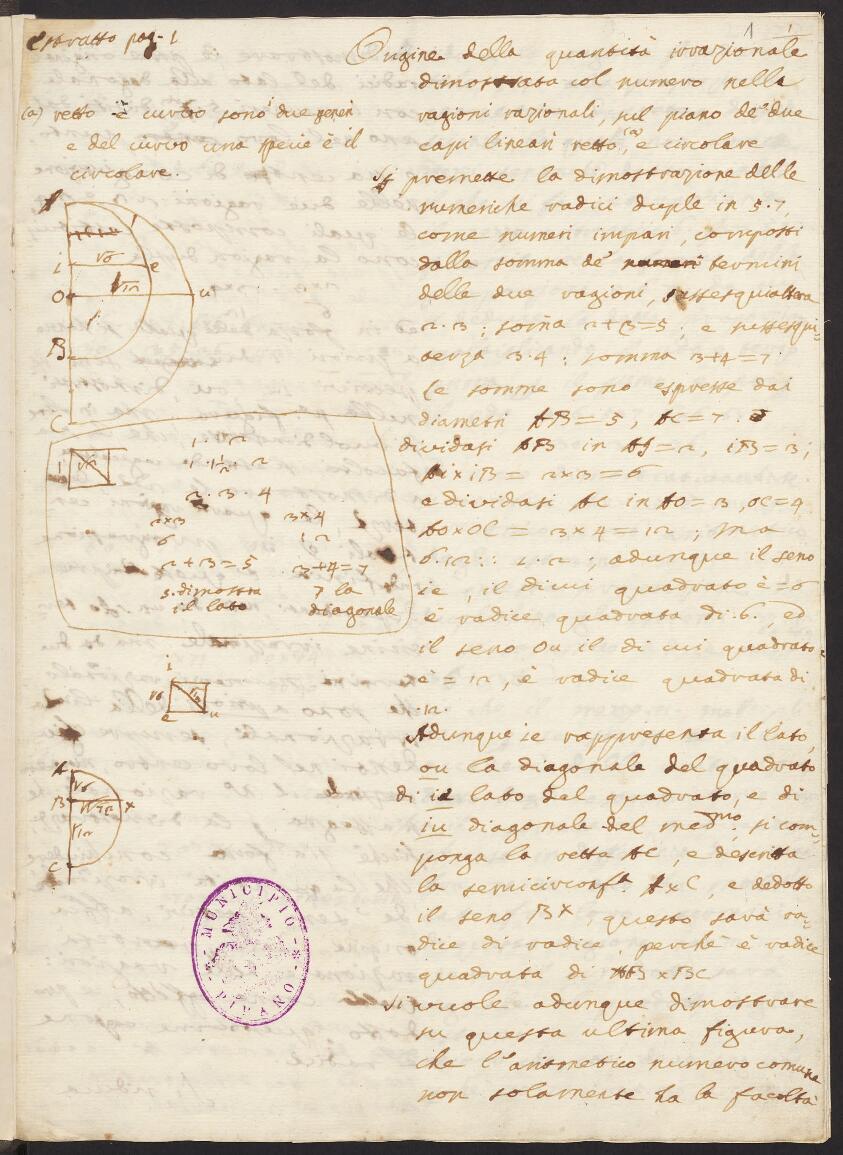 estratto pag. 1
1
(a) retto e curvo sono due generi
e del curvo una specie è il
circolare.
Origine della quantità irrazionale
dimostrata col numero nelle
ragioni razionali, sul piano de' due
capi lineari retto,(a) e circolare
Si premette la dimostrazione delle
numeriche radici duple in 5.7,
come numeri impari, composti
dalla somma de' termini
delle due ragioni, sussesquialtera
2.3; somma 2+3=5; e sussesqui=
terza 3.4: somma 3+4=7.
Le somme sono espresse dai
diametri AB=5, AC=7.
dividasi AB in Ai=2, iB=3;
Ai×iB= 2×3=6
e dividasi AC in AO=3, OC=4
AO×OC= 3×4=12; ma
6.12::1.2; adunque il seno
ie, il di cui quadrato è=6
è radice quadrata di 6., ed
il seno Ou il di cui quadrato
è=12, è radice quadrata di
12.
Adunque ie rappresenta il lato,
ou la diagonale del quadrato
di ie lato del quadrato, e di
iu diagonale del medmo. si com=
ponga la retta AC, e descritta
la semicirconfa. AxC, e dedotto
il seno Bx, questo sarà ra=
dice di radice, perchè è radice
quadrata di AB×BC
Si vuole adunque dimostrare
su questa ultima figura,
che l'aritmetico numero comune
non solamente ha la facoltà
A
i
√6
e
O
√12
u
B
C
1
√2
1.√2
1. 1½. 2
2. 3. 4
2×3 3×4
6 12
2+3=5 3+4=7
5. dimostra 7 la
il lato diagonale
i
√6
√12
e u
A
√6
B
x
√12
C
MUNICIPIO
PIRANO